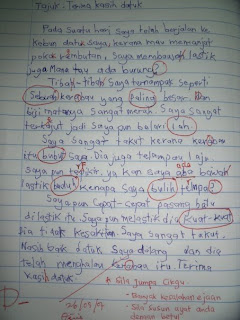 Tajuk - Terima kasih datuk
Pada suatu hari saya telah berjalan ke
Kebun datuk saya, kerana mau memanjat
pokok rambutan, saya membawa lastik
juga mana tau ada burung?
Tibak-Tibak saya ternampak seperti
Sebuah kerabau yang paling besar dan
biji matanya sangat merah. Saya sangat
terkejut jadi saya pun balari lah.
Saya sangat takut kerana
itu saya. Dia juga telampau laju.
Saya pun ya kan saya ada bawak
lastik tadi kenapa saya bulih telupa?
Saya pun cepat-cepat pasang batu
di lastik tu. Saya pun melastik dia kuat-kuat
Dia tidak kesakitan. Saya sangat takut.
Nasib baik datuk saya datang dan dia
telah menghalau kerabau itu. Terima
kasih datuk.
* Gila jumpa Cikgu.
- Banyak kesalahan ejaan
- Sila susun ayat anda
dengan betul
D-